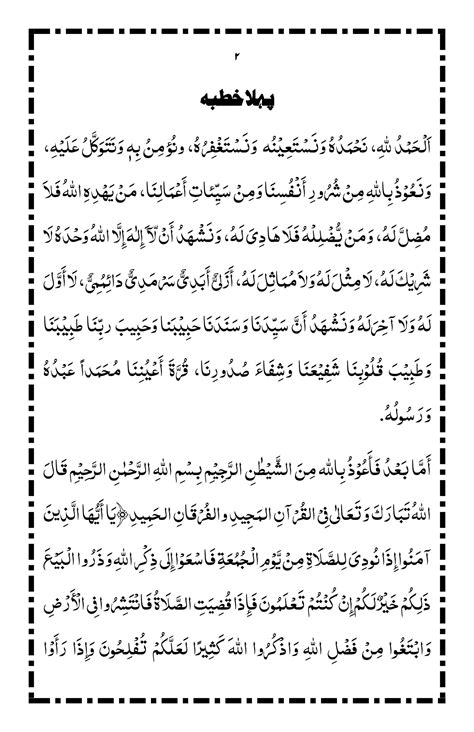 ۲
پہلا خطبہ
اَلْحَمْدُ لِلّٰهِ، نَحْمَدُهُ وَنَسْتَعِيْنُه وَنَسْتَغْفِرُهُ، ونُؤمِنُ بِهٖ وَنَتَوَكَّلُ عَلَيْهِ،
وَنَعُوْذُ بِاللهِ مِنْ شُرُورِ أَنْفُسِنَا وَمِنْ سَيِّئاتِ أَعْمَالِنَا، مَنْ يَهْدِهِ اللهُ فَلاَ
مُضِلَّ لَهُ، وَمَنْ يُّضْلِلْهُ فَلَا هَادِىَ لَهُ، وَنَشْهَدُ أَنْ لَّآ إِلٰهَ إِلَّا اللهُ وَحْدَهُ لَا
شَرِيْكَ لَهُ، لَا مِثْلَ لَهُ وَلاَ مُمَاثِلَ لَهُ، أَزَلِيٌّ أَبَدِيٌّ سَرْمَدِيٌّ دَائِمِيٌّ، لَا أَوَّلَ
لَهُ وَلَا آخِرَ لَهُ وَنَشْهَدُ أَنَّ سَيِّدَنَا وَسَنَدَنَا حَبِيْبَنا وَحَبِيبَ ربِّنا طَبِيْبَنَا
وَطَبِيْبَ قُلُوْبِنَا شَفِيْعَنَا وَشِفَاءَ صُدُورِنَا، قُرَّةَ أَعْيُنِنَا مُحَمَداً عَبْدُهُ
وَرَسُولُهُ.
أَمَّا بَعْدُ فَأَعُوْذُ بِالله مِنَ الشَّيْطٰنِ الرَّجِيْمِ بِسْمِ اللهِ الرَّحْمٰنِ الرَّحِيْمِ قَالَ
اللهُ تَبَارَكَ وَتَعَالٰى فِى القُرْآنِ المَجِيدِ والفُرْقَانِ الحَمِيدِ ﴿يَا أَيُّهَا الَّذِينَ
آمَنُوا إِذَا نُودِيَ لِلصَّلَاةِ مِنْ يَّوْمِ الْجُمُعَةِ فَاسْعَوْا إِلَى ذِكْرِ اللهِ وَذَرُوا الْبَيْعَ
ذَلِكُمْ خَيْرٌ لَكُمْ إِنْ كُنْتُمْ تَعْلَمُونَ فَإِذَا قُضِيَتِ الصَّلَاةُ فَانْتَشِرُوا فِى الْأَرْضِ
وَابْتَغُوا مِنْ فَضْلِ اللهِ وَاذْكُرُوا اللهَ كَثِيرًا لَعَلَّكُمْ تُفْلِحُونَ وَإِذَا رَأَوْا